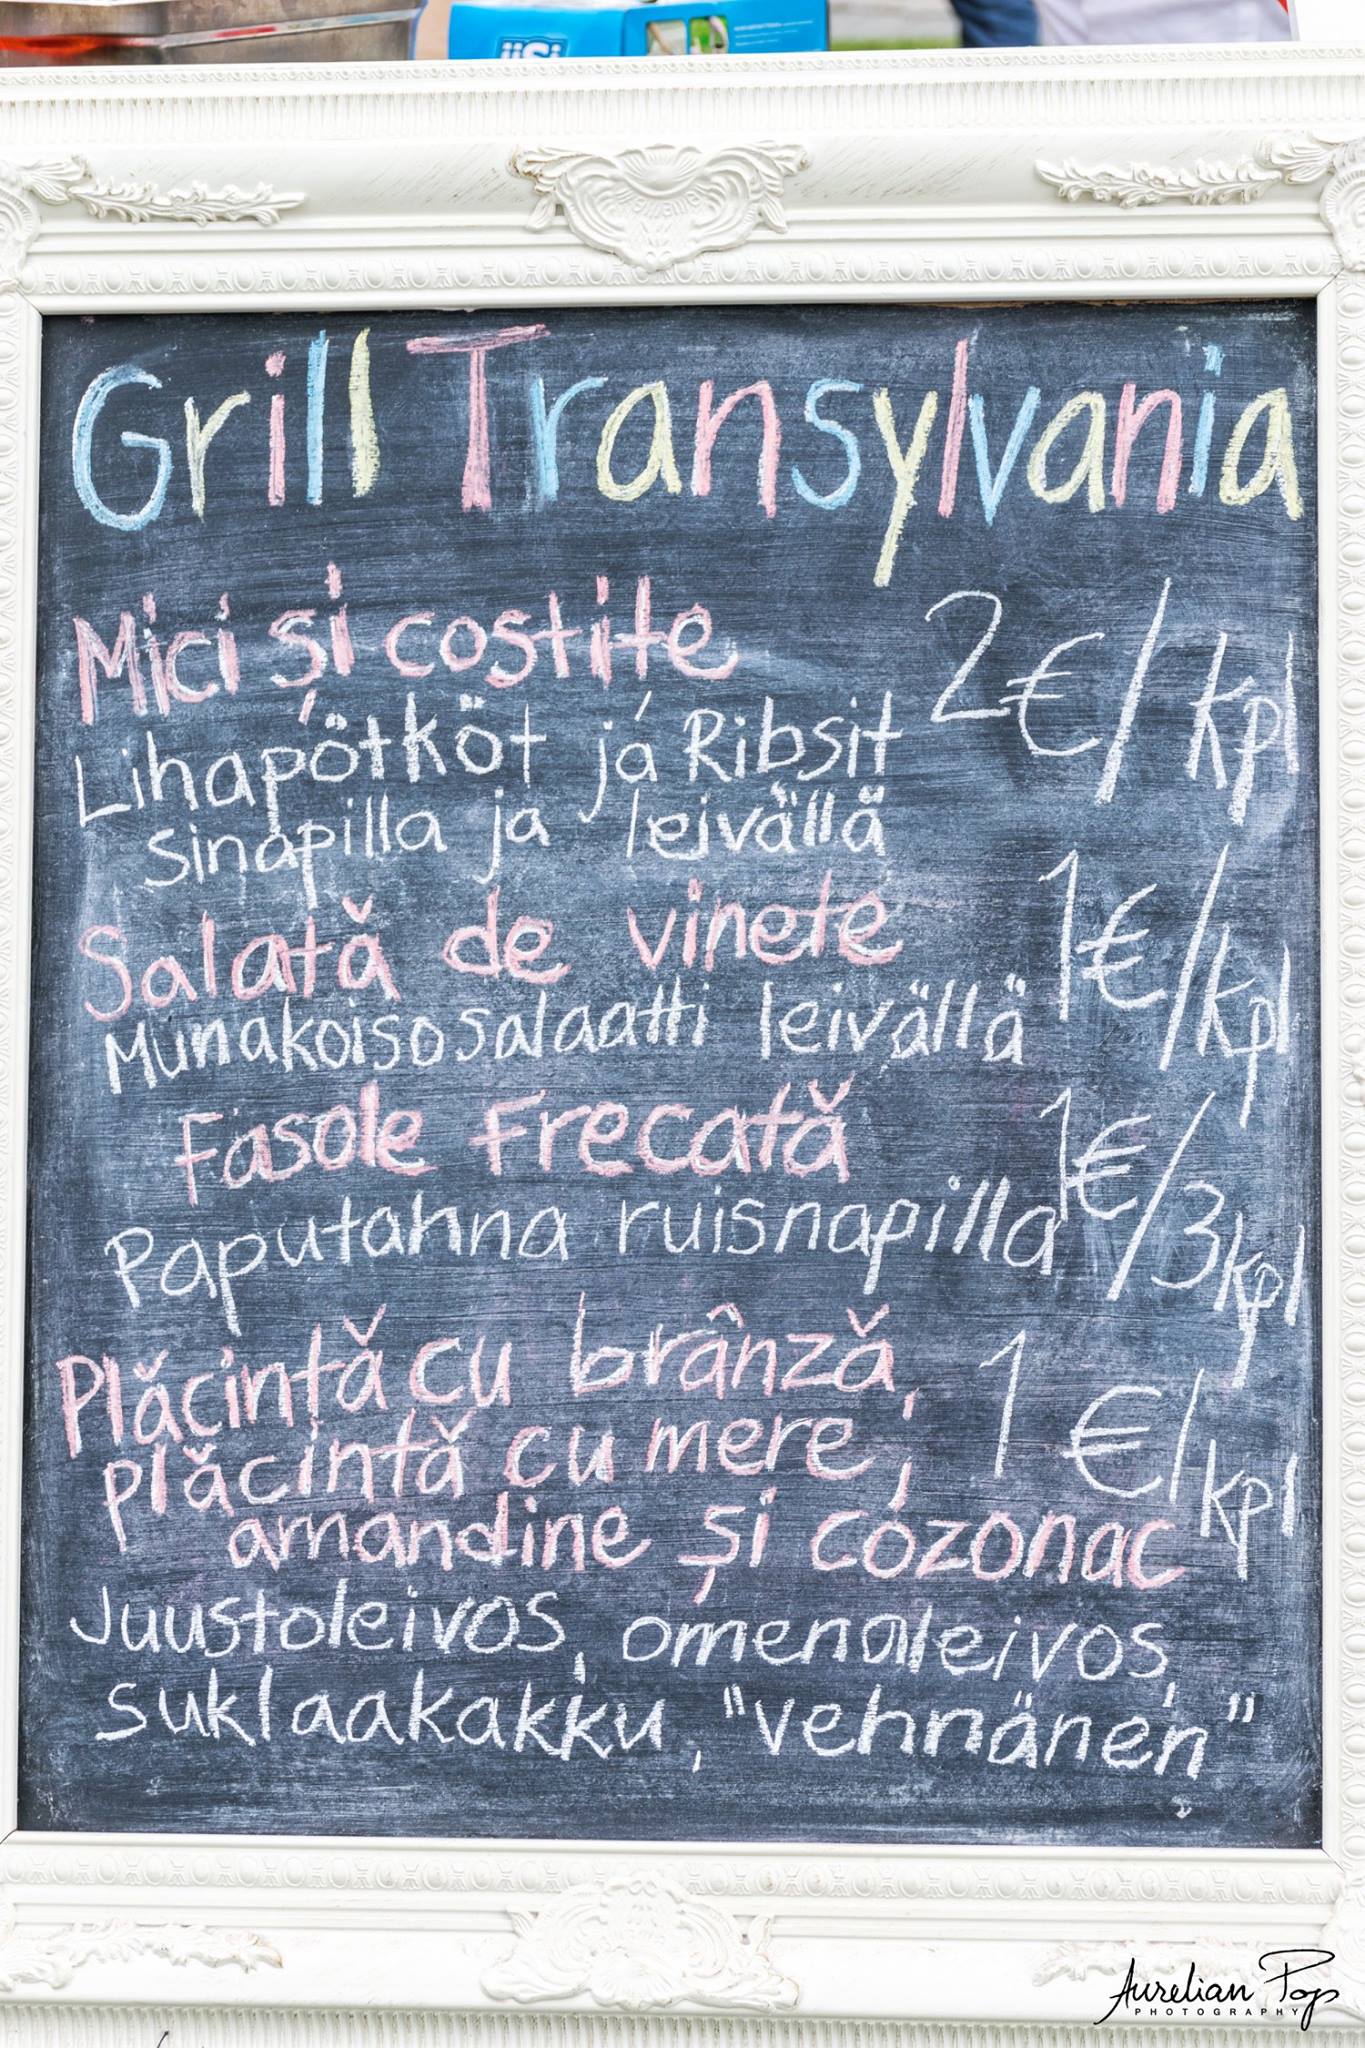 iisi
Grill Transylvania
Mici și costite 2€/kpl
Lihapötköt ja Ribsit
Sinapilla ja leivällä
Salată de vinete 1€/kpl
Munakoisosalaatti leivällä
Fasole Frecată 1€/3kpl
Paputahna ruisnapilla
Plăcintă cu brânză, 1€/kpl
plăcintă cu mere,
amandine și cozonac
Juustoleivos, omenaleivos,
suklaakakku, "vehnänen"
Aurelian Pop
PHOTOGRAPHY